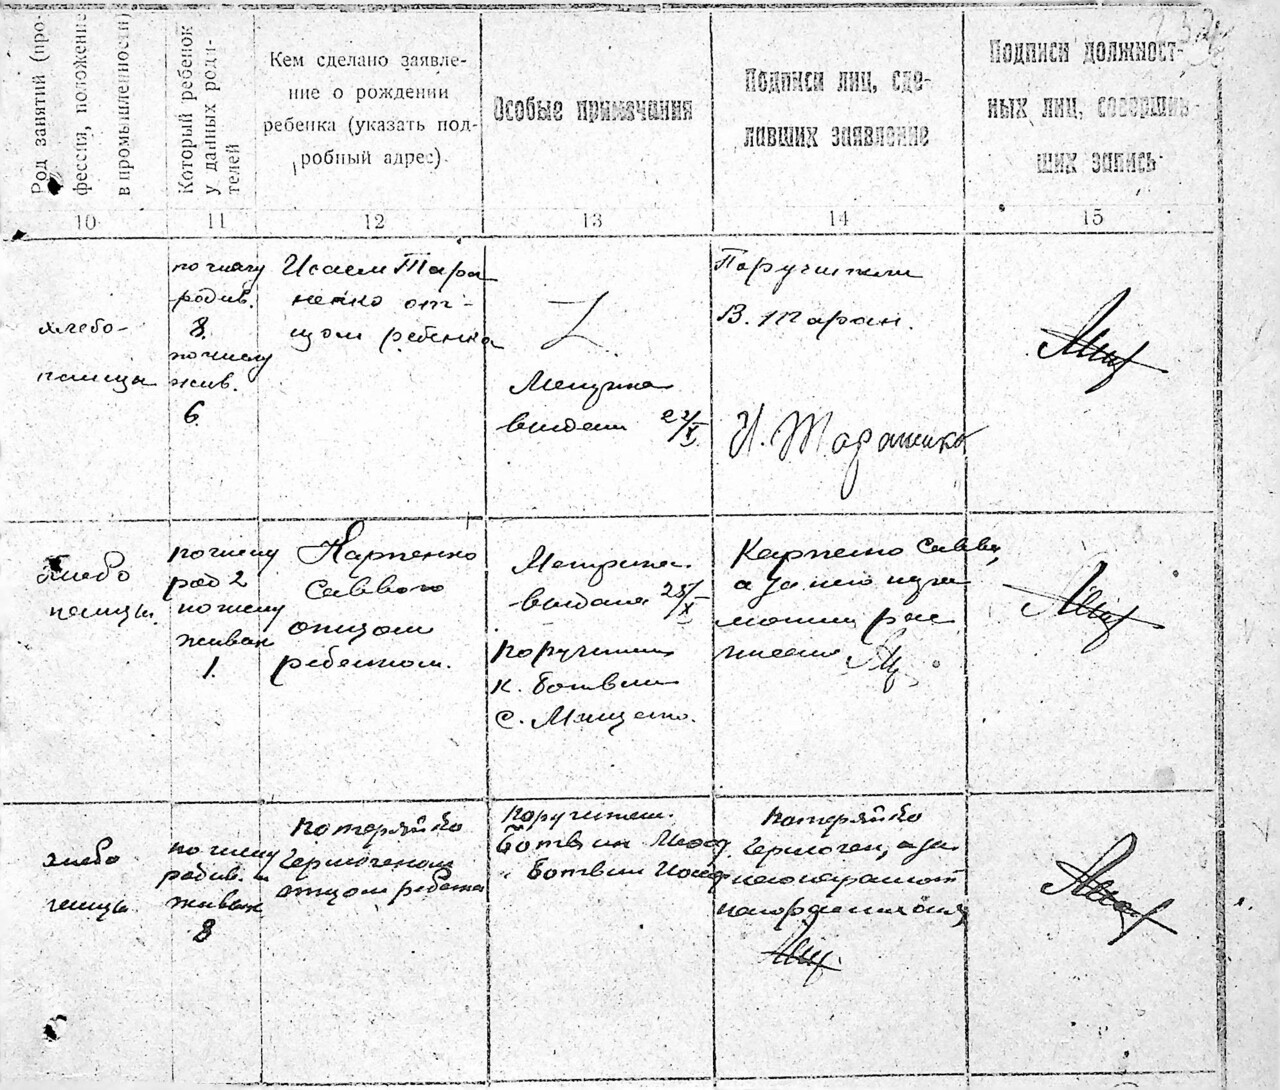 Род занятий (про-
фессия, положение
в промышленности)
Который ребенок
у данных роди-
телей
Кем сделано заявле-
ние о рождении
ребенка (указать под-
робный адрес).
Особые примечания
Подписи лиц, сде-
лавших заявление
Подписи должност-
ных лиц, совершив-
ших запись
10
11
12
13
14
15
хлебо-
пашцы
по числу
родив.
8.
по числу
жив.
6
Исаем Тара
ненко от-
цом ребенка
Метрика
выдана 22/X
Поручители
В. Таран.
И. Тараненко
хлебо
пашцы
по числу
род 2
по числу
живых
1.
Карпенко
Саввою
отцом
ребенком.
Метрика
выдана 25/X
поручители
К. Ботвин
С. Мищенко.
Карпенко Савва,
а за него негра
мотным рас
хлебо
пашцы
по числу
родив. и
живых
8
Котеряйко
Гермогеном
отцом ребенка
поручители.
Ботвин
Ботвин Иосиф
Котеряйко
Гермоген, а за
него неграмот